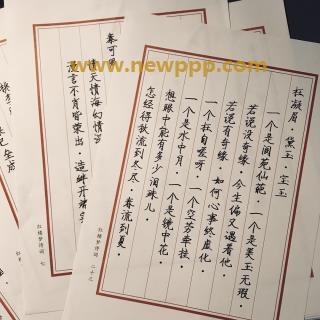 www.newppp.com
枉凝眉·黛玉·宝玉
一个是阆苑仙葩·一个是美玉无瑕·
若说没奇缘·今生偏又遇着他·
若说有奇缘·如何心事终虚化·
一个枉自嗟呀·一个空劳牵挂·
一个是水中月·一个是镜中花·
想眼中能有多少泪珠儿·
怎经得秋流到冬尽·春流到夏·
红楼梦诗词 二十九
秦可
情天情海幻情
漫言不肖皆荣出·造衅开端
红楼梦诗词 七